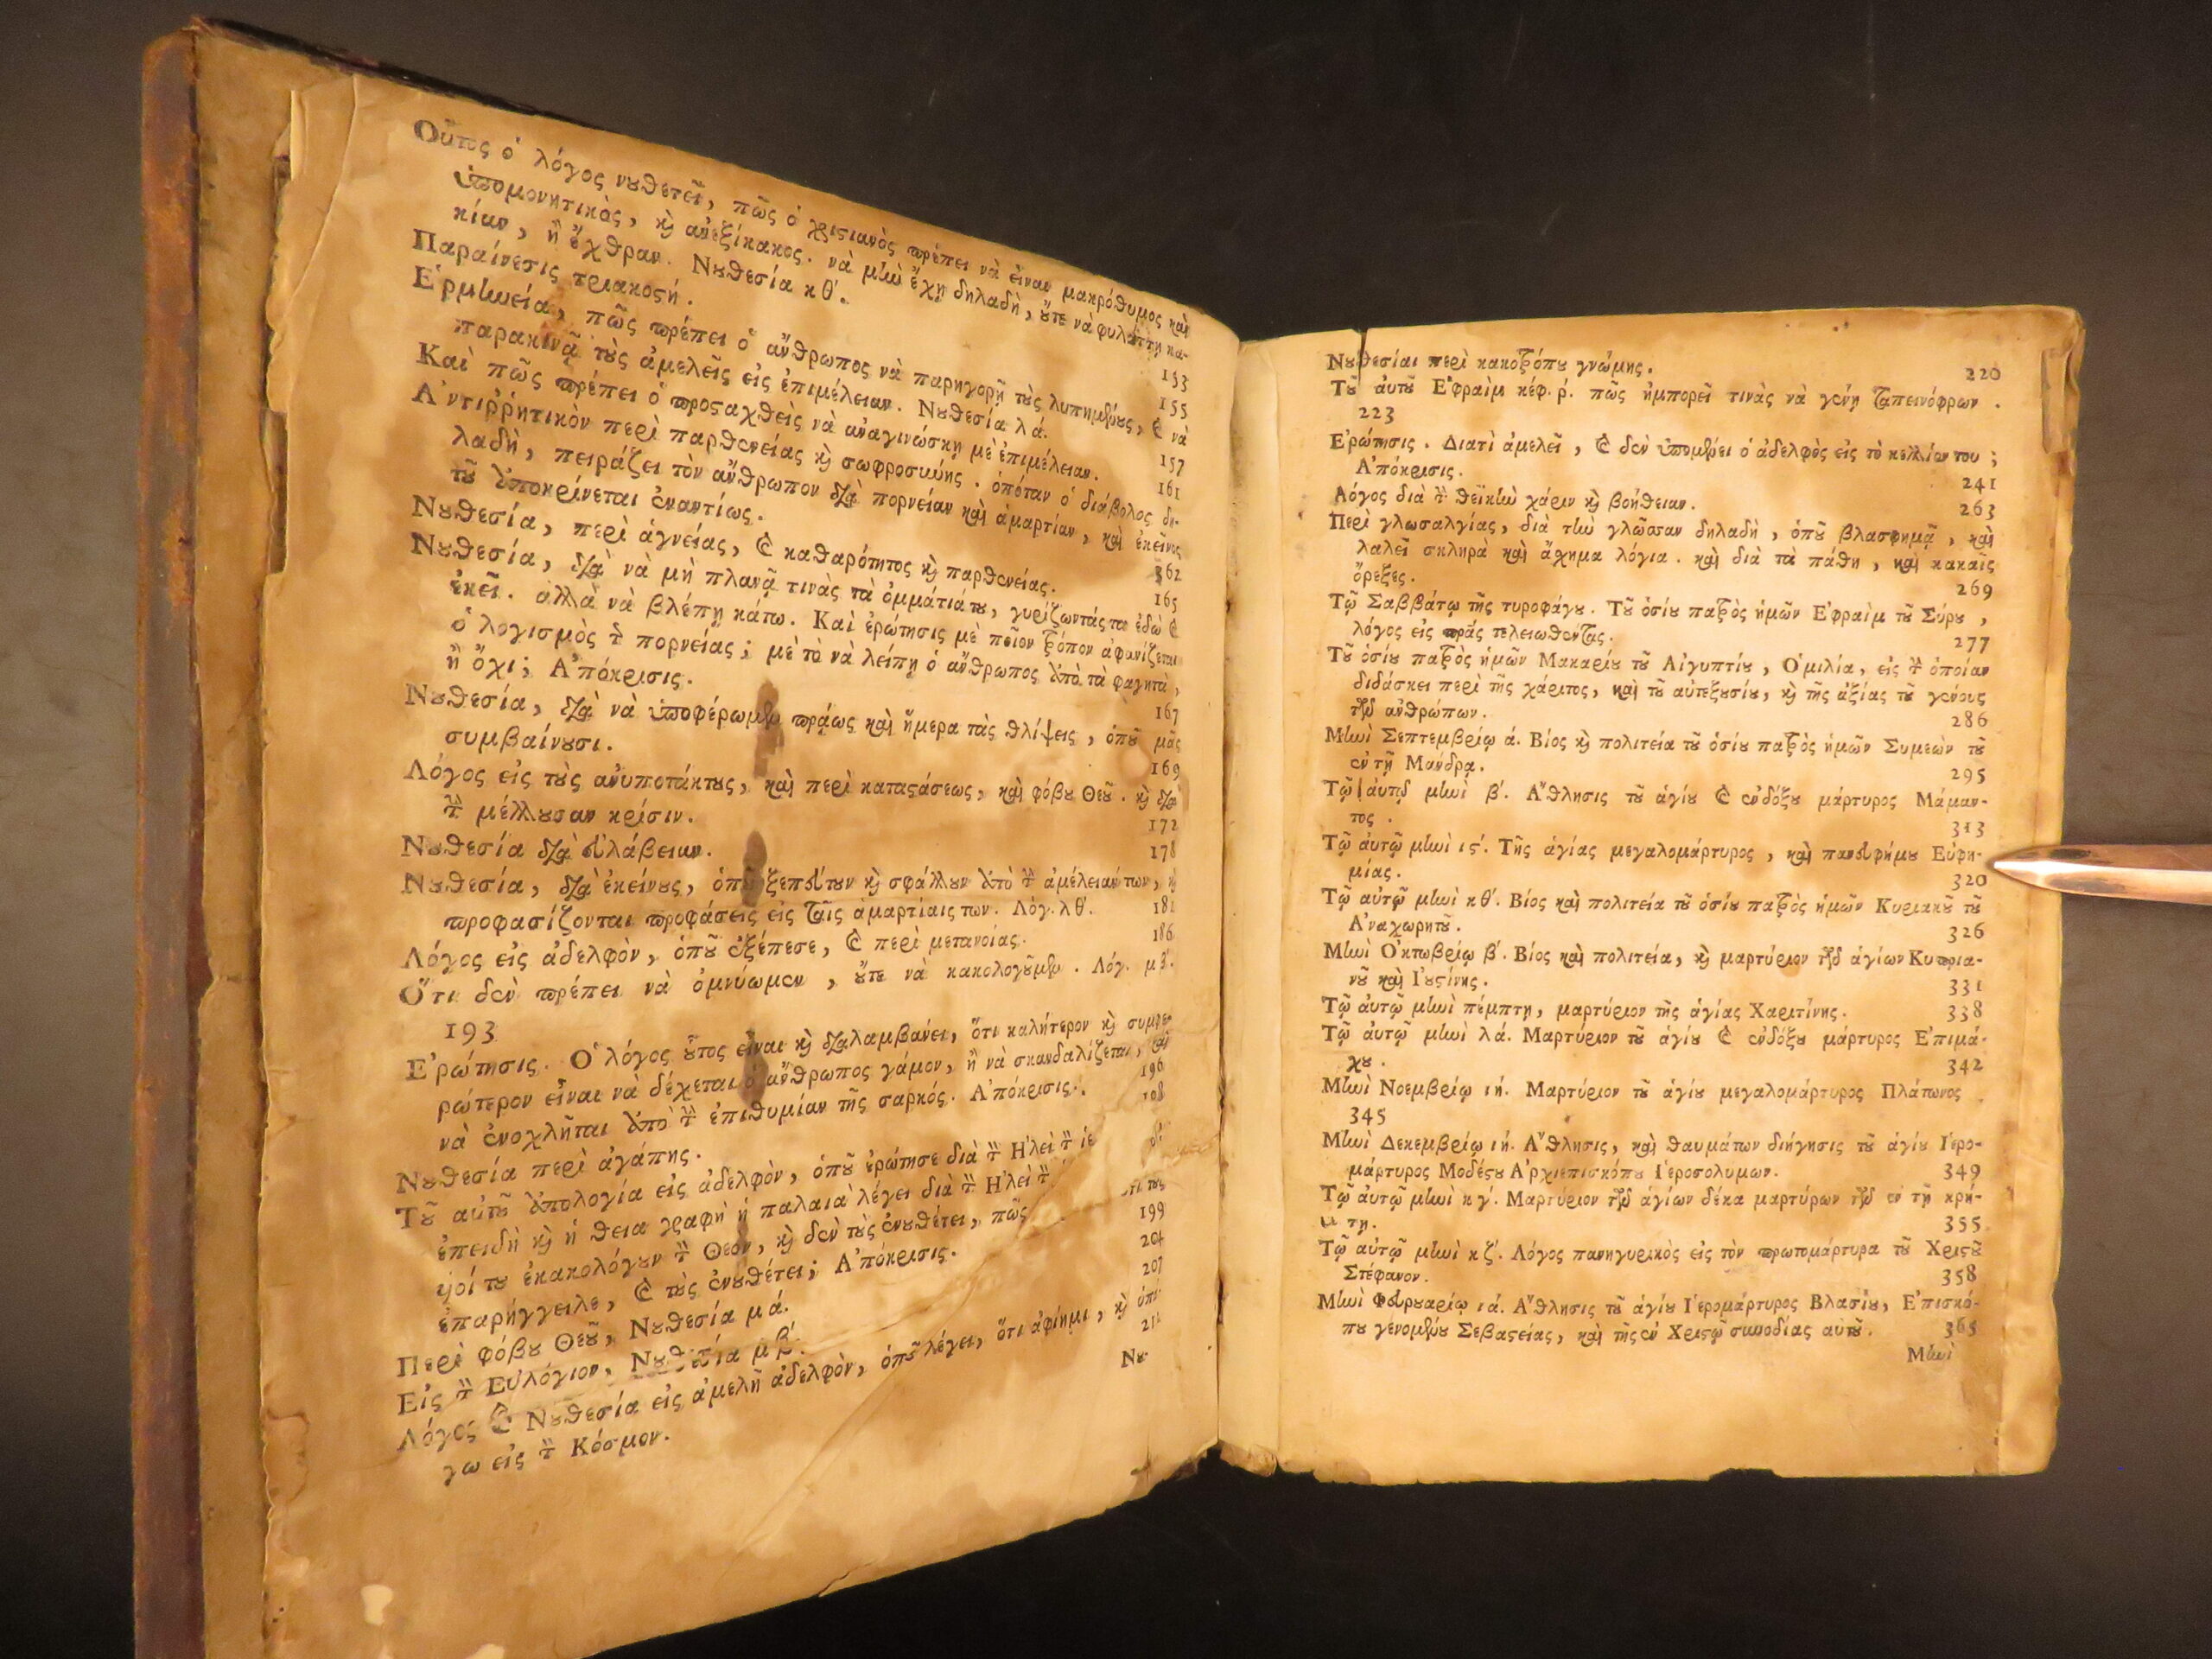 Οὗτος ὁ λόγος νȣθετεῖ, πῶς ὁ χριστιανὸς πρέπει νὰ εἶναι μακρόθυμος καὶ
ὑπομονητικὸς, κỳ ἀνεξίκακος. νὰ μὴν ἔχῃ δηλαδὴ, ȣ̓́τε νὰ φυλάττῃ κα-
κίαν, ἢ ἔχθραν. Νȣθεσία κθ́. 153
Παραίνεσις τριακοστή. 155
Ἑρμηνεία, πῶς πρέπει ὁ ἄνθρωπος νὰ παρηγορῇ τȣ̀ς λυπημένȣς, καὶ νὰ
παρακινᾷ τȣ̀ς ἀμελεῖς εἰς ἐπιμέλειαν. Νȣθεσία λά. 157
Καὶ πῶς πρέπει ὁ προσταχθεὶς νὰ ἀναγινώσκῃ μὲ ἐπιμέλειαν. 161
Ἀντιῤῥητικὸν περὶ παρθενείας κỳ σωφροσύνης. ὁπόταν ὁ διάβολος δη-
λαδὴ, πειράζει τὸν ἄνθρωπον διὰ πορνείαν καὶ ἁμαρτίαν, καὶ ἐκεῖνος
τȣ͂ ἀποκρίνεται ἐναντίως. 362
Νȣθεσία, περὶ ἁγνείας, καὶ καθαρότητος κỳ παρθενείας. 165
Νȣθεσία, διὰ νὰ μὴ πλανᾷ τινὰς τὰ ὀμμάτιάτȣ, γυρίζωντάς τα ἐδῶ καὶ
ἐκεῖ. ἀλλὰ νὰ βλέπῃ κάτω. Καὶ ἐρώτησις μὲ ποῖον τρόπον ἀφανίζεται
ὁ λογισμὸς τῆς πορνείας; μὲ τὸ νὰ λείπῃ ὁ ἄνθρωπος ἀπὸ τὰ φαγητὰ,
ἢ ὄχι; Ἀπόκρισις. 167
Νȣθεσία, διὰ νὰ ὑποφέρωμεν πράως καὶ ἥμερα τὰς θλίψεις, ὁπȣ͂ μᾶς
συμβαίνȣσι. 169
Λόγος εἰς τȣ̀ς ἀνυποτάκτȣς, καὶ περὶ καταστάσεως, καὶ φόβȣ Θεȣ͂. κỳ διὰ
τὴν μέλλȣσαν κρίσιν. 172
Νȣθεσία διὰ εὐλάβειαν. 178
Νȣθεσία, διὰ ἐκείνȣς, ὁπȣ͂ ξεπεύτȣν κỳ σφάλλȣν ἀπὸ τὴν ἀμέλειάν των, κỳ
προφασίζονται προφάσεις εἰς ταῖς ἁμαρτίαις των. Λόγ. λθ́. 181
Λόγος εἰς ἀδελφὸν, ὁπȣ͂ ἐξέπεσε, καὶ περὶ μετανοίας. 186
Ὅτι δὲν πρέπει νὰ ὀμνύωμεν, ȣ̓́τε νὰ κακολογȣ͂μεν. Λόγ.
193
Ἐρώτησις. Ὁ λόγος ȣ̓͂τος εἶναι κỳ διαλαμβάνει, ὅτι καλήτερον κỳ συμφε-
ρώτερον εἶναι νὰ δέχεται ὁ ἄνθρωπος γάμον, ἢ νὰ σκανδαλίζεται, καὶ
νὰ ἐνοχλῆται ἀπὸ τὴν ἐπιθυμίαν τῆς σαρκός. Ἀπόκρισις. 196
Νȣθεσία περὶ ἀγάπης. 198
Τȣ͂ αὐτȣ͂ ἀπολογία εἰς ἀδελφὸν, ὁπȣ͂ ἐρώτησε διὰ τὸν Ἠλεὶ τὸν
ἐπειδὴ κỳ ἡ θεια γραφὴ ἡ παλαιὰ λέγει διὰ τὸν Ἠλεὶ
ὑιοί τȣ ἐκακολόγȣν τὸν Θεὸν, κỳ δὲν τȣ̀ς ἐνȣθέτει, πῶς
ἐπαρήγγειλε, καὶ τȣ̀ς ἐνȣθέτει; Ἀπόκρισις. 199
Περὶ φόβȣ Θεȣ͂, Νȣθεσία μά. 204
Εἰς τὸν Εὐλόγιον, Νȣθεσία μβ́. 207
Λόγος καὶ Νȣθεσία εἰς ἀμελῆ ἀδελφὸν, ὁπȣ͂ λέγει, ὅτι ἀφίημι, κỳ ὑπά-
γω εἰς τὸν Κόσμον.
Νȣ-
Νȣθεσίαι περὶ κακοτρόπȣ γνώμης. 220
Τȣ͂ ἀυτȣ͂ Ἐφραὶμ κέφ. ῥ. πῶς ἠμπορεῖ τινὰς νὰ γένῃ ταπεινόφρων.
223
Ἐρώτησις. Διατὶ ἀμελεῖ, καὶ δὲν ὑπομένει ὁ ἀδελφὸς εἰς τὸ κελλίον του;
Ἀπόκρισις. 241
Λόγος διὰ τὴν θεϊκὴν χάριν κỳ βοήθειαν. 263
Περὶ γλωσαλγίας, διὰ τὴν γλῶσσαν δηλαδὴ, ὁπȣ͂ βλασφημᾷ, καὶ
λαλεῖ σκληρὰ καὶ ἄχημα λόγια. καὶ διὰ τὰ πάθη, καὶ κακαῖς
ὄρεξες. 269
Τῷ Σαββάτῳ τῆς τυροφάγȣ. Τȣ͂ ὁσίȣ πατρὸς ἡμῶν Ἐφραὶμ τȣ͂ Σύρȣ,
λόγος εἰς πρᾶς τελειωθέντας. 277
Τȣ͂ ὁσίȣ πατρὸς ἡμῶν Μακαρίȣ τȣ͂ Αἰγυπτίȣ, Ὁμιλία, εἰς τὴν ὁποίαν
διδάσκει περὶ τῆς χάριτος, καὶ τȣ͂ αὐτεξȣσίȣ, κỳ τῆς ἀξίας τȣ͂ γένους
τῶν ἀνθρώπων. 286
Μηνὶ Σεπτεμβρίῳ ά. Βίος κỳ πολιτεία τȣ͂ ὁσίȣ πατρὸς ἡμῶν Συμεὼν τȣ͂
ἐν τῇ Μάνδρᾳ. 295
Τῷ ἀυτῷ μηνὶ β́. Ἄθλησις τȣ͂ ἁγίȣ καὶ ἐνδόξȣ μάρτυρος Μάμαν-
τος. 313
Τῷ ἀυτῷ μηνὶ ιϛ́. Τῆς ἁγίας μεγαλομάρτυρος, καὶ πανευφήμȣ Εὐφη-
μίας. 320
Τῷ αὐτῷ μηνὶ κθ́. Βίος καὶ πολιτεία τȣ͂ ὁσίȣ πατρὸς ἡμῶν Κυριακȣ͂ τȣ͂
Ἀναχωρητȣ͂. 326
Μηνὶ Ὀκτωβρίῳ β́. Βίος καὶ πολιτεία, κỳ μαρτύριον τῶν ἁγίων Κυπρια-
νȣ͂ καὶ Ἰȣστίνης. 331
Τῷ ἀυτῷ μηνὶ πέμπτῃ, μαρτύριον τῆς ἁγίας Χαριτίνης. 338
Τῷ ἀυτῷ μηνὶ λά. Μαρτύριον τȣ͂ ἁγίȣ καὶ ἐνδόξȣ μάρτυρος Ἐπιμά-
χȣ. 342
Μηνὶ Νοεμβρίῳ ιή. Μαρτύριον τȣ͂ ἁγίȣ μεγαλομάρτυρος Πλάτωνος
345
Μηνὶ Δεκεμβρίῳ ιή. Ἄθλησις, καὶ θαυμάτων διήγησις τȣ͂ ἁγίȣ Ἱερο-
μάρτυρος Μοδέστȣ Ἀρχιεπισκόπȣ Ἱεροσολυμων. 349
Τῷ ἀυτῷ μηνὶ κγ́. Μαρτύριον τῶν ἁγίων δέκα μαρτύρων τῶν ἐν τῇ κρή-
τῃ. 355
Τῷ αὐτῷ μηνὶ κζ́. Λόγος πανηγυρικὸς εἰς τὸν πρωτομάρτυρα τȣ͂ Χριστȣ͂
Στέφανον. 358
Μηνὶ Φευρȣαρίῳ ιά. Ἄθλησις τȣ͂ ἁγίȣ Ἱερομάρτυρος Βλασίȣ, Ἐπισκό-
πȣ γενομένȣ Σεβαστείας, καὶ τῆς ἐν Χριστῷ συνοδίας αὐτȣ͂. 365
Μηνὶ